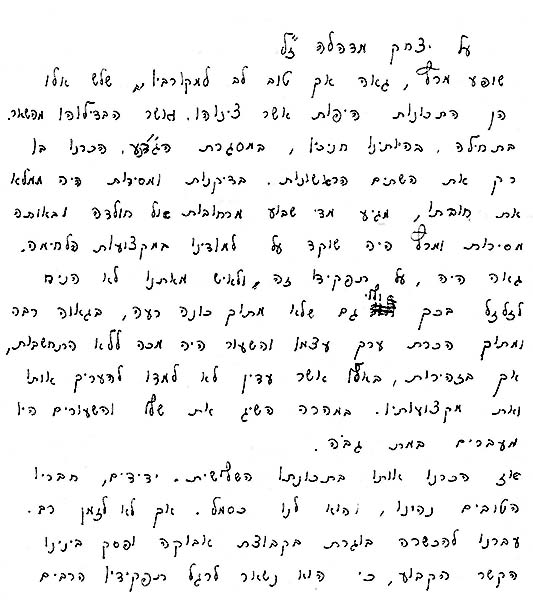 על יצחק מדהלה ז"ל
שופע מרץ, גאה אך טוב לב למקורביו, שלש אלו
הן התכונות היפות אשר ציינוהו. ואשר הבדילוהו מהשאר.
בתחילה, בהיותינו חניכיו, במסגרת הגדנ"ע, הכרנו בו
רק את השתים הראשונות. בדיקנות ומסירות היה ממלא
את חובתו, מגיע מדי שבוע מרחובות חולדה ובאותה
מסירות ומרץ היה שוקד על למודינו במקצועות הלחימה.
גאה היה, על תפקידו זה, ולאיש מאתנו לא הניח
לזלזל בכך גם שלא מתוך כונה רעה, בגאוה רבה
ומתוך הכרת ערך עצמו והשעור היה מכה ללא התחשבות,
אך בזהירות, באלו אשר עדין לא למדו להעריך אותו
ואת מקצועותיו. במהרה השיג את שלו והשעורים היו
מעברים במת גבה.
אז הכרנו אותו בתכונתו השלישית. ידידים, חבריו
הטובים נהינו, והוא לנו כסמל. אך לא לזמן רב.
עברנו להכשרה בוגרת בקבוצת אבוקה ופסק בינינו
הקשר הקבוע, כי הוא נשאר לרגל תפקידיו הרבים